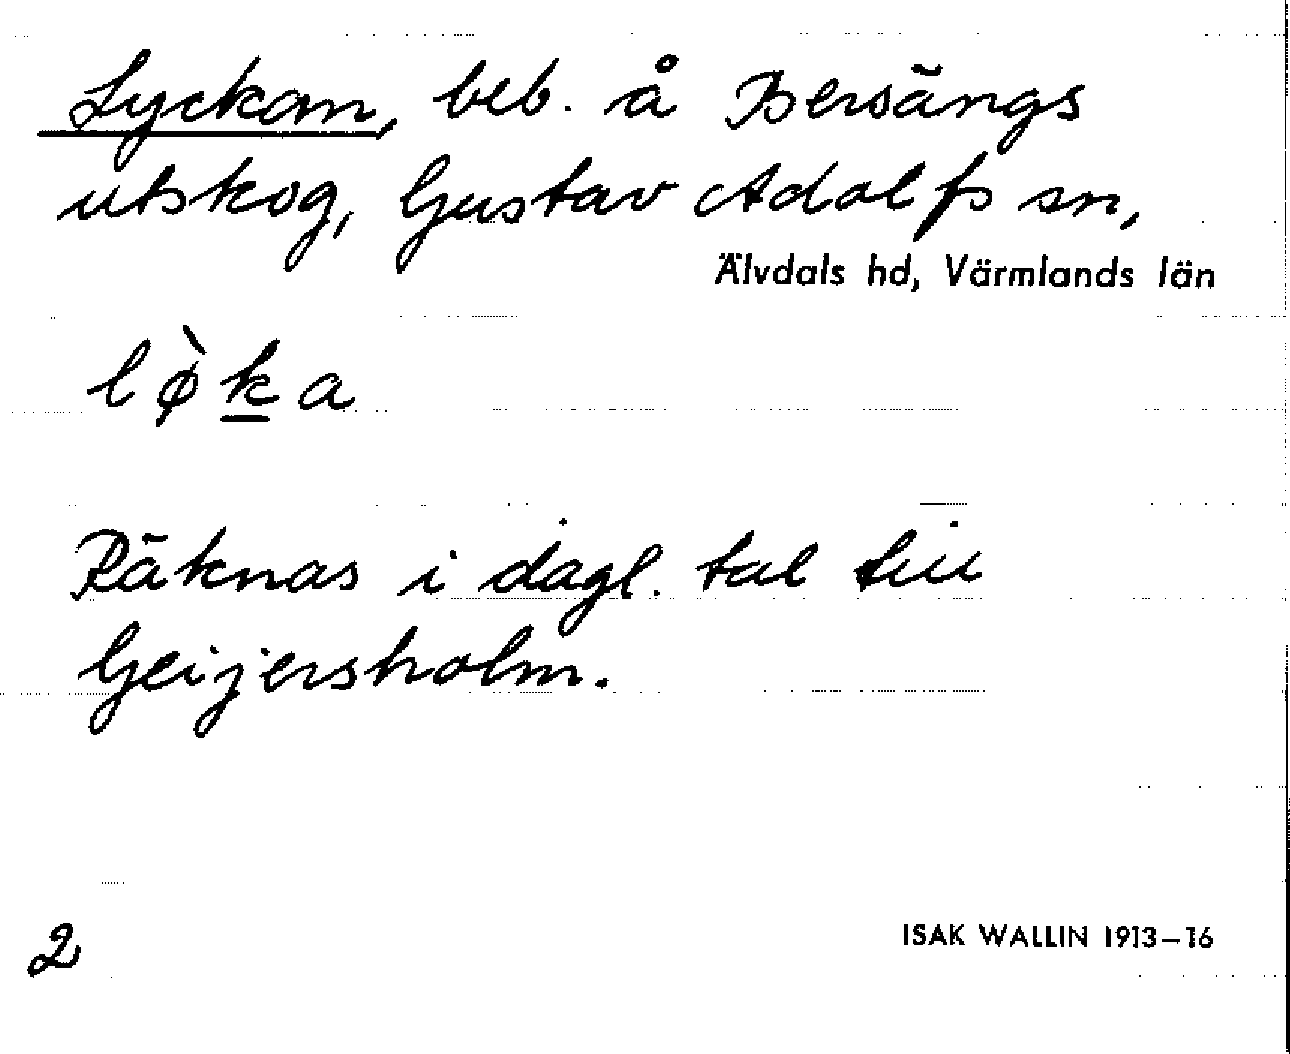 Lyckan, beb. å Bersängs
utskog, Gustav Adolfs sn,
Älvdals hd, Värmlands län
lø̀k̲a
Räknas i dagl. tal till
Geijersholm.
2
ISAK WALLIN 1913–16